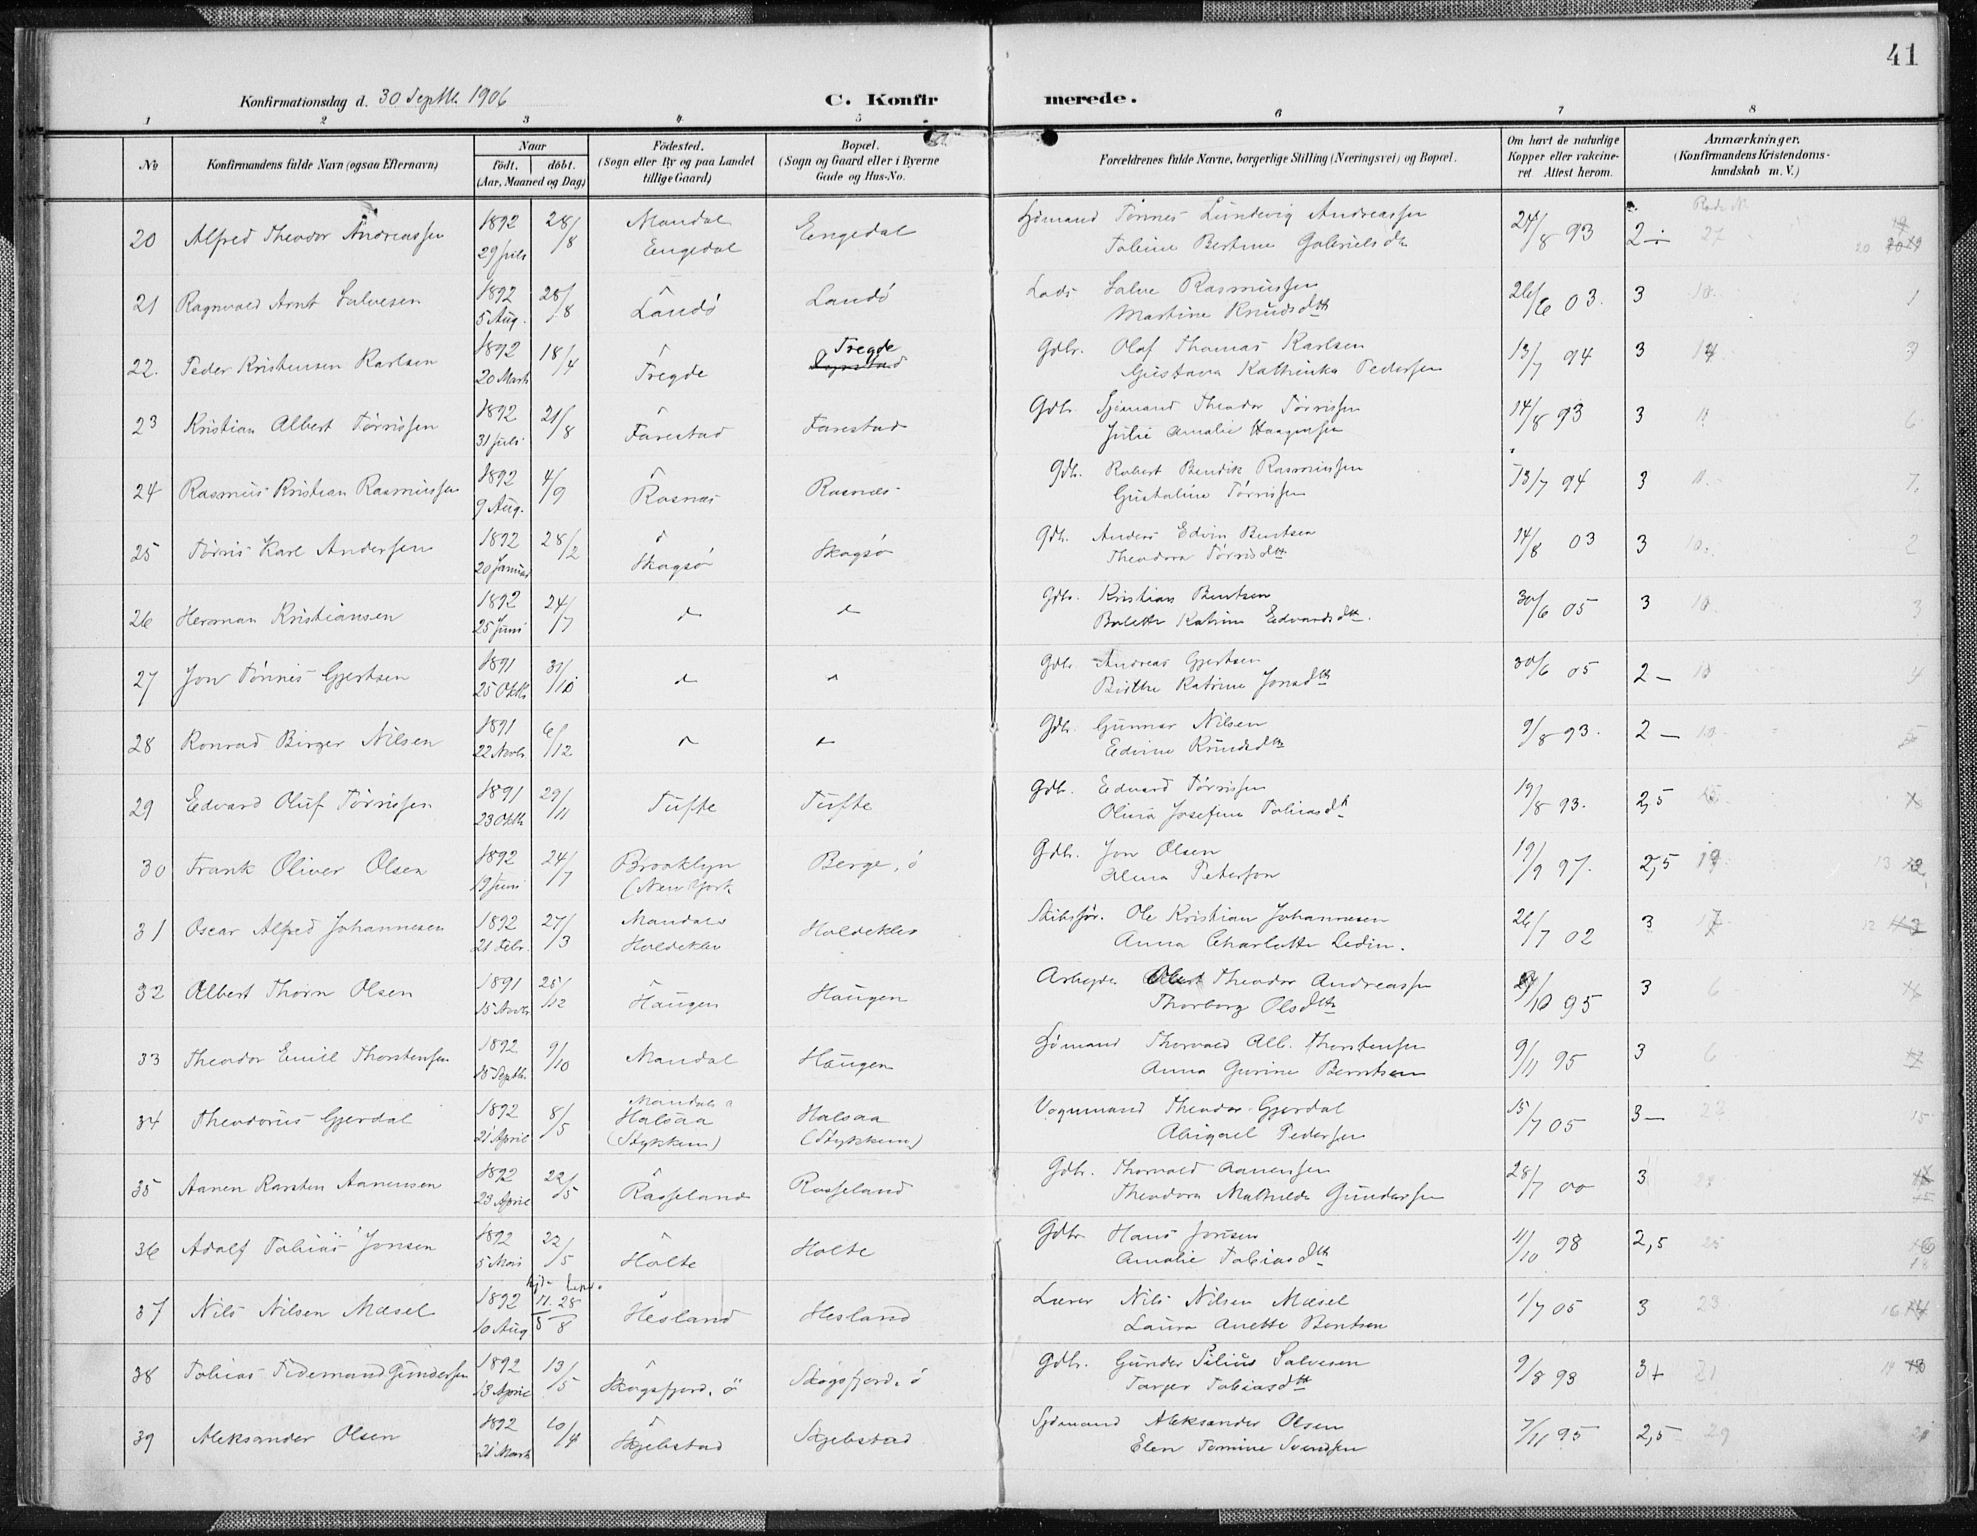 41
Konfirmationsdag d. 30 Septbr. 1906 C. Konfir merede.
1 2 3 4 5 6 7 8
No Konfirmandens fulde Navn (ogsaa Efternavn) Naar født. døbt. (Aar, Maaned og Dag) Födested. (Sogn eller By og paa Landet tillige Gaard) Bopæl. (Sogn og Gaard eller i Byerne Gade og Hus-No. Forældrenes fulde Navne, borgerlige Stilling (Næringsvei) og Bopæl. Om havt de naturlige Kopper eller vakcineret. Attest herom. Anmærkninger. (Konfirmandens Kristendomskundskab m. V.)
20 Alfred Theodor Andreassen 1892 29 juli 28/8 Mandal Engedal Engedal Sjømand Tønnes Lundevig Andreassen
Tobine Bertine Gabrielsdtr 24/8 93 2 ÷ 27
21 Ragnvald Arnt Salvesen 1892 5 Aug. 28/8 " Landö Landö Lods Salve Rasmussen
Martine Knudsdtr 26/6 03. 3 10. 1
22. Peder Kristensen Karlsen 1892 20 Marts 18/4 " Tregde Tregde Gdbr. Olaf Thomas Karlsen
Gustava Kathrinka Pedersen 13/7 94 3 3
23 Kristian Albert Tørrissen 1892 31 juli 21/8 " Farestad Farestad Gdbr. Sjømand Theodor Tørrissen
Julie Amalie Haagensen 14/8 93 3 6
24 Rasmus Kristian Rasmussen 1892 9 Aug. 4/9 " Rosnæs Rosnæs Gdb. Robert Bendik Rasmussen
Gustaline Tørrissen 13/7 94 3 7.
25 Tørris Karl Andersen 1892 20 Januar 28/2 " Skogsø Skogsø Gdb. Anders Edvin Bentsen
Theodora Tørrisdtr 14/8 03 3 10. 2
26 Herman Kristiansen 1892 25 Juni 24/7 " " Gdbr. Kristian Bentsen
Bolette Katrine Edvardsdtr. 30/6 05 3 10. 3
27 Jon Tønnes Gjertsen 1891 25 Oktb. 31/10 " " Gdbr Andreas Gjertsen
Birthe Katrine Jonsdtr 30/6 05 2 — 10 4
28 Konrad Birger Nilsen 1891 22 Novbr. 6/12 " " Gdb. Gunnar Nilsen
Edvine Knudsdtr 9/8 93. 2 — 10 5
29 Edvard Oluf Tørrissen 1891 23 Oktb. 29/11 Tufte Tufte Gdb. Edvard Tørrissen
Olina Josefine Tobiasdtr 19/8 93. 2,5
30 Frank Oliver Olsen 1892 19 Juni 24/7 Brooklyn (New York Berge, ö Gdbr. Jon Olsen
Alma Peterson 19/9 97. 2,5 13
31 Oscar Alfred Johannesen 1892 21 Febr. 27/3 Mandals Holdeklev Holdeklev Skibsfør. Ole Kristian Johannesen
Anna Charlotte Ledin. 26/7 02 3 12
32 Albert Thorn Olsen 1891 15 Novbr 25/12 " Haugen Haugen Arbeyder Theodor Andreassen
Thorborg Olsdtr /10 95 3 6
33 Theodor Emil Thorstensen 1892 18 Septbr. 9/10 Mandal Haugen Sømand Thorvald Alb. Thorstensen
Anna Gurine Berntsen 9/11 95 3 6
34 Theodorus Gjerdal 1892 21 April 8/5 Mandals Halsaa (Stykkum) Halsaa (Stykkum) Vognmand Theodor Gjerdal
Abigael Pedersen 15/7 05 3 — 15
35 Aanen Karsten Aanensen 1892 23 April 22/5 " Rosseland Rosseland Gdbr. Thorvald Aanensen
Theodora Mathilde Gundersen 28/7 00 3
36 Adolf Tobias Jonsen 1892 5 Mai 22/5 " Holte Holte Gdbr Hans Jonsen
Amalie Tobiasdtr 11/10 98 2,5 25
37 Nils Nilsen Mæsel 1892 10 Aug " Hesland Hesland Lærer Nils Nilsen Mæsel
Laura Anette Bentsen 1/7 05 3 23 16
38 Tobias Tidemand Gundersen 1892 13 April 13/5 " Skogsfjord. ö Skogsfjord. ö Gdbr. Gunder Silius Salvesen
Targer Tobiasdtr 9/8 93 3+ 21 14
39 Aleksander Olsen 1892 21 Marts 10/4 " Skjebstad Skjebstad Sjømand Aleksander Olsen
Elen Tomine Svendsen 7/11 95 2,5 29